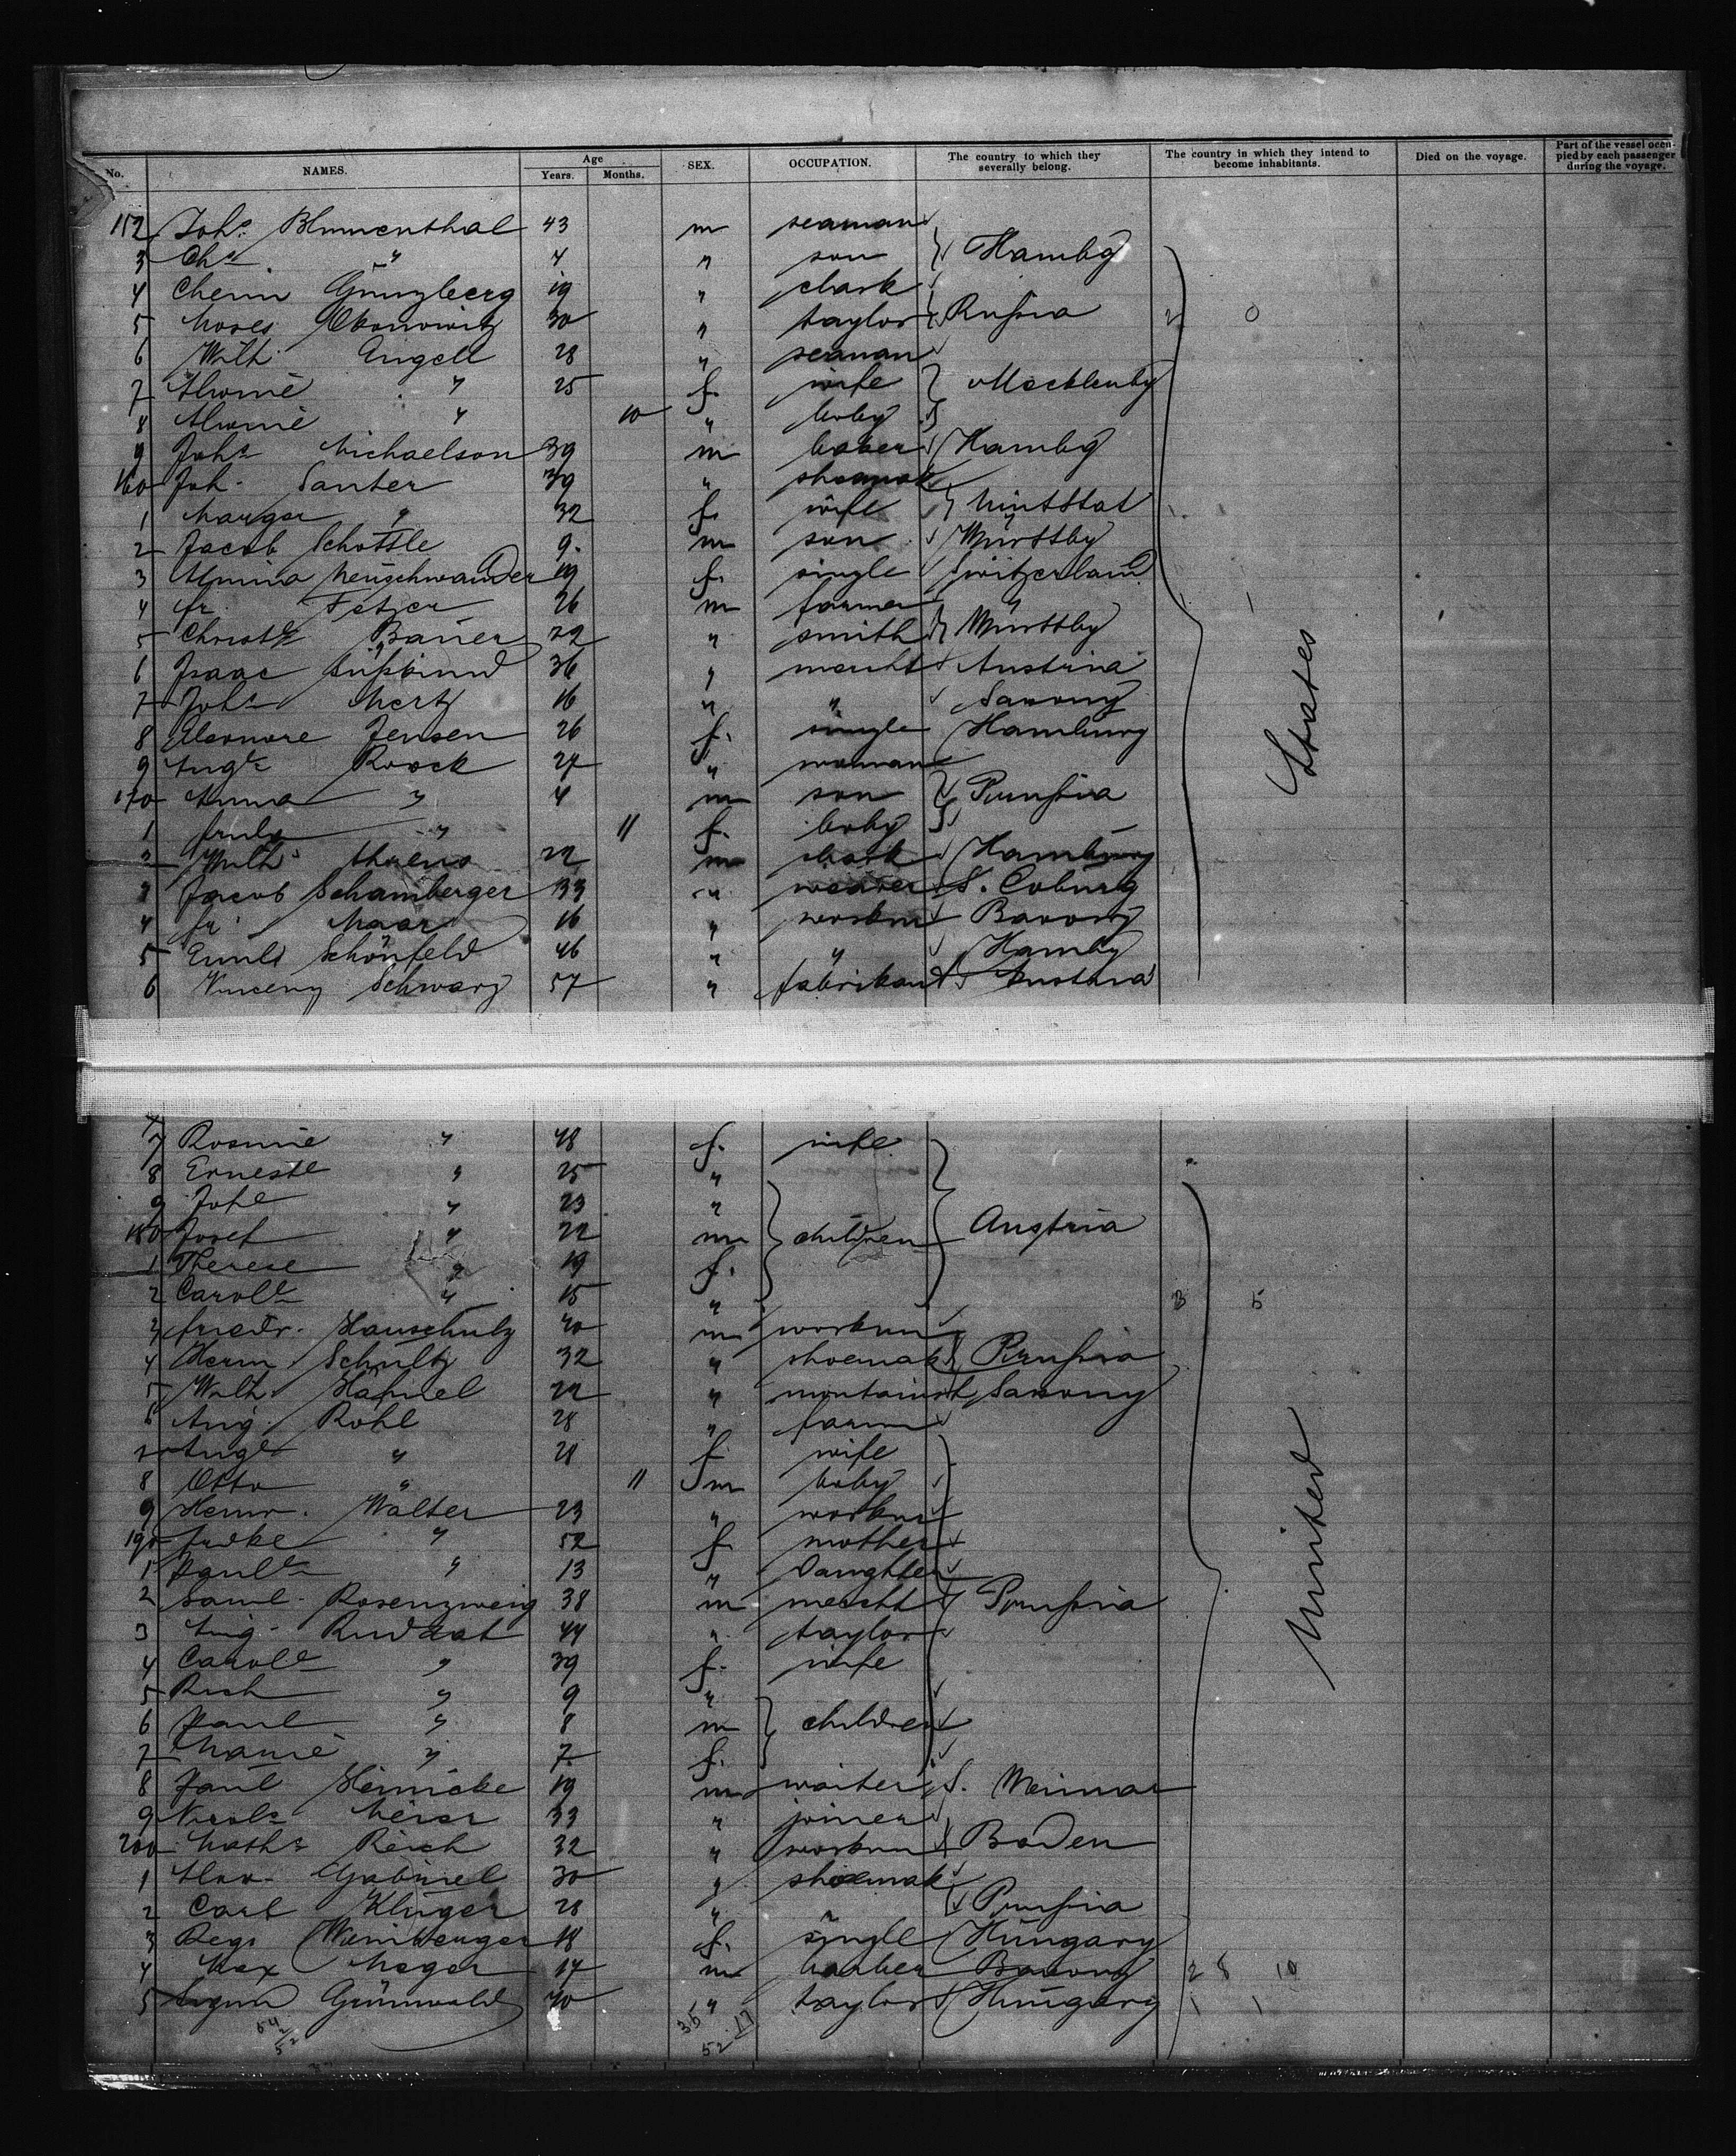 No. NAMES. Age Years. Months. SEX. OCCUPATION. The country to which they severally belong. The country in which they intend to become inhabitants. Died on the voyage. Part of the vessel occupied by each passenger during the voyage.
152 Johs. Blumenthal 43 m seaman
3 Chs. " 4 " son Hambg
4 Chenn Gunzberg 19 " clark
5 Moses 30 " taylor Russia 2 0
6 Wilh. Engell 28 " seaman
7 Alwine " 25 f. wife Mecklenbg
8 Alwine " 10 " boby
9 Johs Michaelson 39 m baker Hambg
160 Joh. Santer 39 " shoemak
1 Margar " 32 f. wife UnitStat
2 Jacob Schottle 9. m son Württbg
3 Almina Neuschwander 19 f. single Switzerland
4 fr. Fetzer 26 m farmer 1
5 Christ Bauer 22 " smith Württbg
6 Isaac Süsskind 36 " mercht Austria
7 Johs Mertz 16 " " Saxony
8 Eleonore Jensen 26 f. single Hamburg
9 Augte Roock 27 " woman
170 Anna " 4 m son Prussia
1 " 11 f. boby
2 Wilh. Ahrens 22 m clark Hamburg
3 Jacob Schamberger 33 " weaver S. Coburg
4 fr. Maar 16 " workm
5 Schönfeld 46 " " Hambg
6 Schwarz 57 " fabrikant Austria
States
7 Rosine " 48 f. wife
8 Erneste " 25 "
9 " 23 "
180 Josef " 22 m children Austria
1 Therese " 19 f.
2 Carole " 15 " 3 5
3 friedr. Hauschulz 40 m workm
4 Herm. Schultz 32 " shoemak Prussia
5 Wilh. Hähnel 22 " Saxony
6 Aug. Rohl 28 " farm
7 Auge " 28 f wife
8 Otto " 11 m boby
9 Heinr. Walter 23 " workm
190 " 52 f mother
1 Paule " 13 " Daughter
2 Saml. Rosenzweig 38 m mercht Prussia
3 Aug. Rudzat 44 " taylor
4 Carole " 39 f. wife
5 Rich " 9 "
6 Paul " 8 m children
7 Marie " 7 f.
8 Paul Heinicke 19 m waiter S. Weimar
9 Nicols Meier 33 " joiner
200 Maths Reich 32 " workm Baden
1 Gabriel 30 " shoemak
2 Carl Klinger 28 " " Prussia
3 18 f. single Hungary
4 Max Mager 17 m barber 2 8 10
5 Grünwald 40 " taylor Hungary 1 1
United
35 17
52